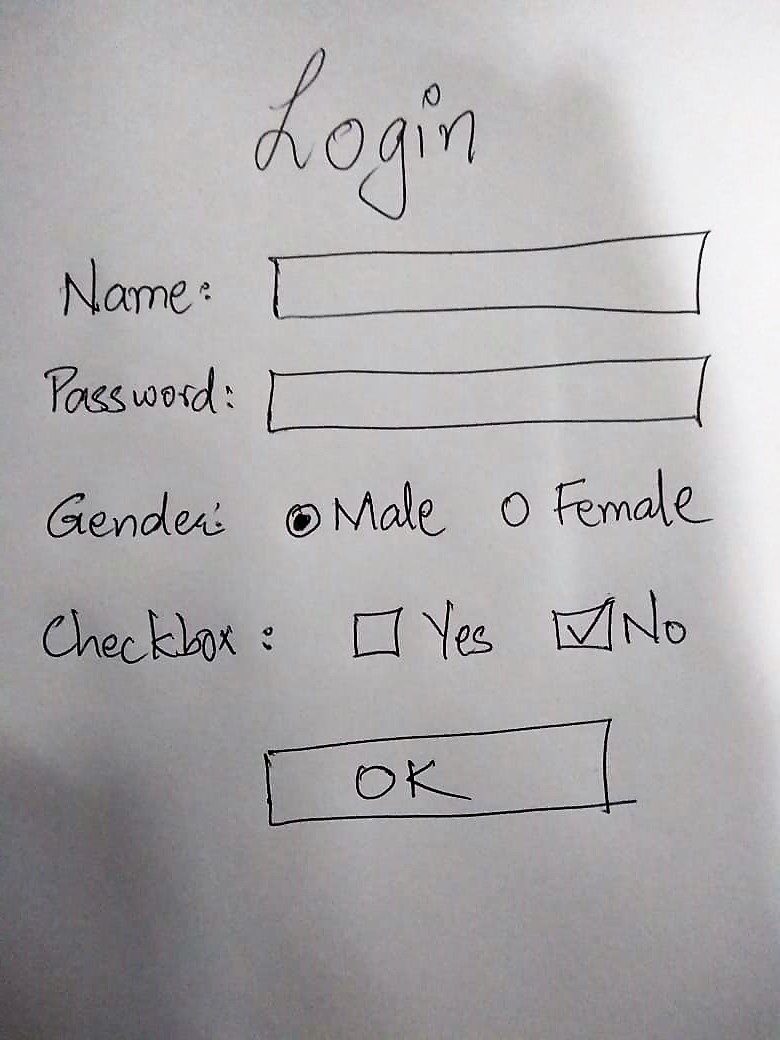 Login
Name:
Password:
Gender: Male Female
Checkbox: Yes No
OK